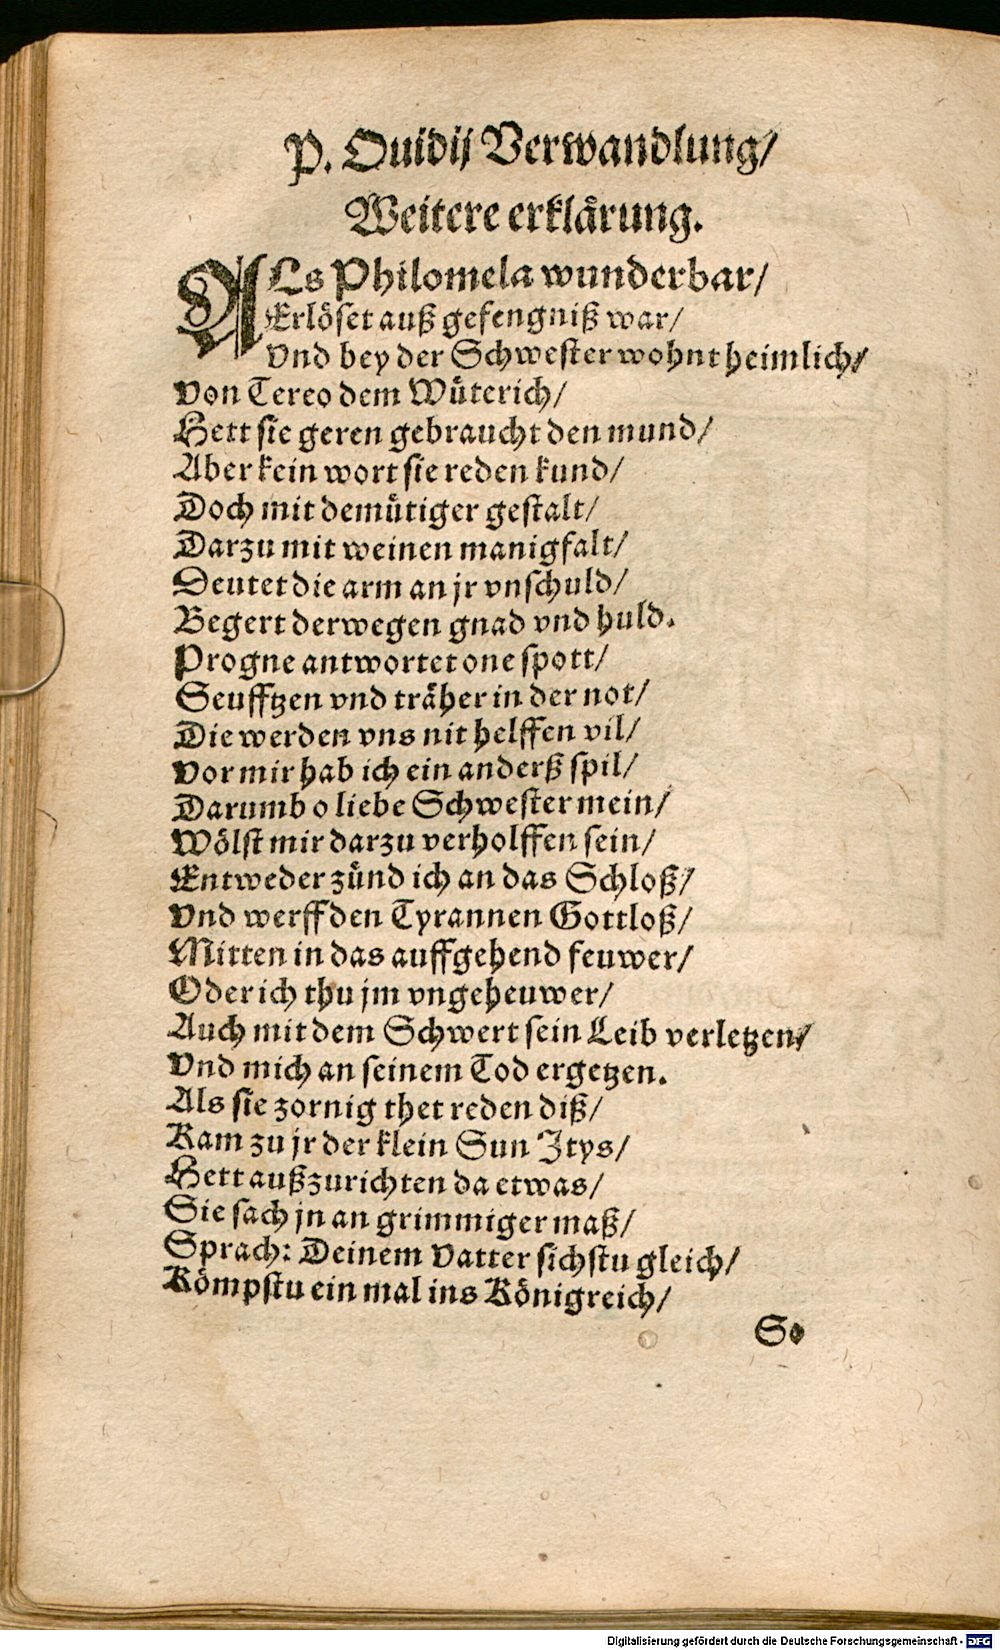 P. Ouidij Verwandlung/
Weitere erklärung.
ALs Philomela wunderbar/
Erlöset auß gefengniß war/
Vnd bey der Schwester wohnt heimlich/
Von Tereo dem Wüterich/
Hett sie geren gebraucht den mund/
Aber kein wort sie reden kund/
Doch mit demütiger gestalt/
Darzu mit weinen manigfalt/
Deutet die arm an jr vnschuld/
Begert derwegen gnad vnd huld.
Progne antwortet one spott/
Seufftzen vnd träher in der not/
Die werden vns nit helffen vil/
Vor mir hab ich ein anderß spil/
Darumb o liebe Schwester mein/
Wölst mir darzu verholffen sein/
Entweder zünd ich an das Schloß/
Vnd werff den Tyrannen Gottloß/
Mitten in das auffgehend feuwer/
Oder ich thu jm vngeheuwer/
Auch mit dem Schwert sein Leib verletzen/
Vnd mich an seinem Tod ergetzen.
Als sie zornig thet reden diß/
Kam zu jr der klein Sun Itys/
Hett außzurichten da etwas/
Sie sach jn an grimmiger maß/
Sprach: Deinem Vatter sichstu gleich/
Kömpstu ein mal ins Königreich/
So
Digitalisierung gefördert durch die Deutsche Forschungsgemeinschaft - DFG